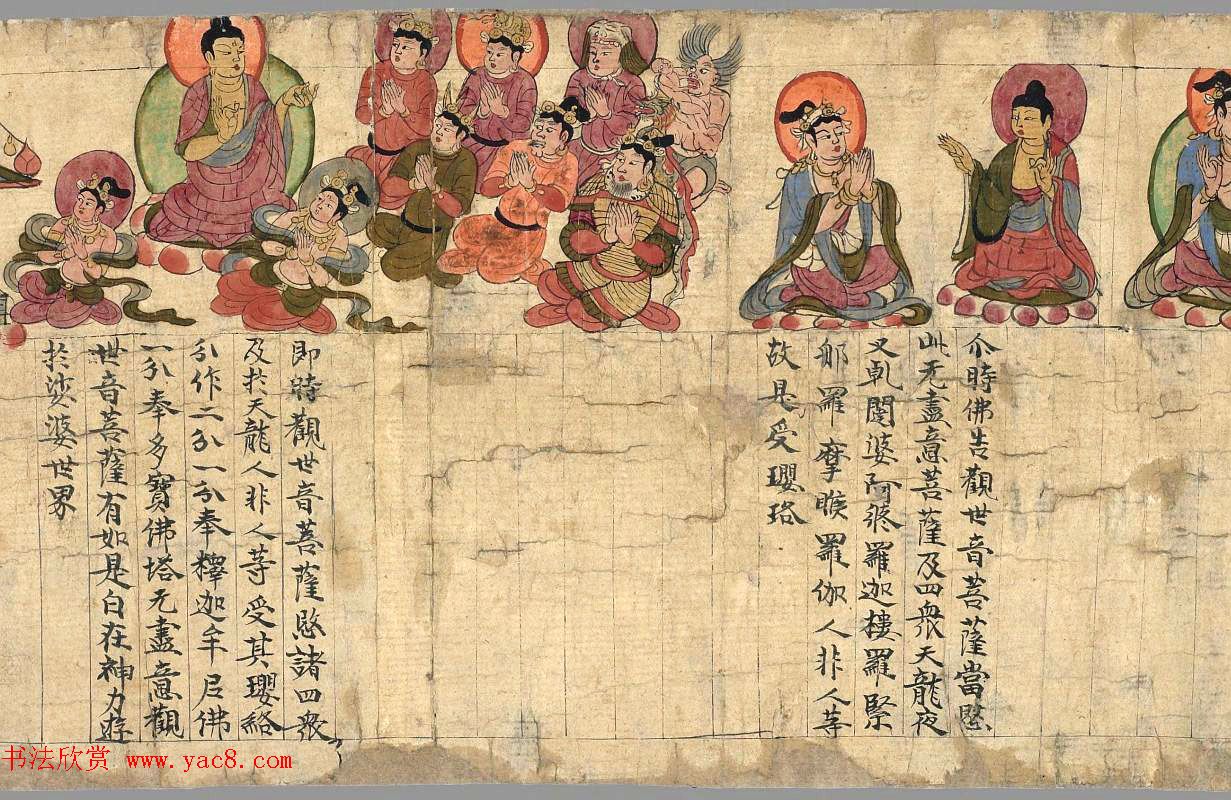 尒時佛告觀世音菩薩當愍
此无盡意菩薩及四衆天龍夜
叉乹闥婆阿修羅迦樓羅緊
那羅摩睺羅伽人非人等
故是受瓔珞
即時觀世音菩薩愍諸四衆
及扵天龍人非人等受其瓔珞
分作二分一分奉釋迦牟尼佛
一分奉多寶佛塔无盡意觀
世音菩薩有如是自在神力遊
扵娑婆世界
书法欣赏 www.yac8.com